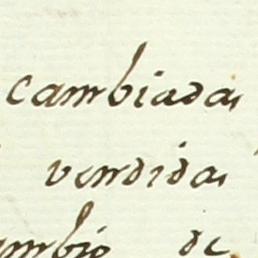 cambiadas
vendidas
ambio de